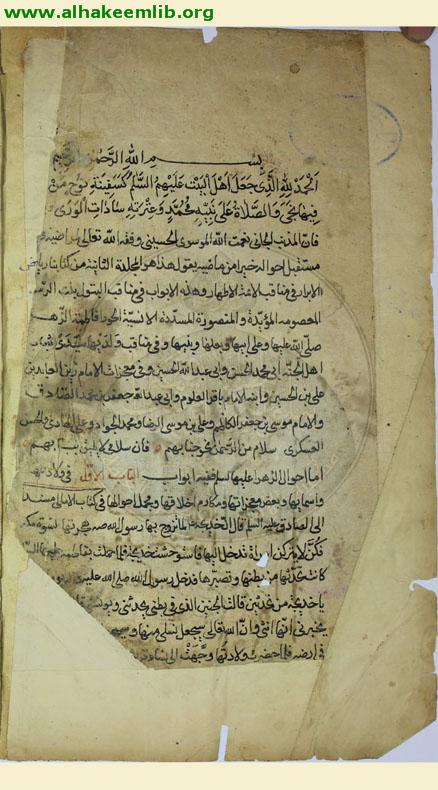 www.alhakeemlib.org
بسم الله الرحمن الرحيم
الحمد لله الذي جعل اهل البيت عليهم السلم كسفينة نوح من
فيها نجى والصلاة على نبيه محمد وعترته سادات الورى و
فان المذنب الجاني نعمت الله الموسوي الحسيني وفقه الله تعالى لمراضيه و
مستقبل احواله خيرا من ماضيه يقول هذا هو المجلد الثانية من كتابنا رياض
الابرار في مناقب الائمة الاطهار وهذه الابواب في مناقب البتول بنت الرسول
المعصومه المؤيدة والمنصورة المسددة الانسية الحوراء فاطمة الزهراء
صلى الله عليها وعلى ابيها وبعلها وبنيها وفي مناقب ولديها سيدي شباب
اهل الجنة ابي محمد الحسن وابي عبد الله الحسين وفي معجزات الامام زين العابدين
علي بن الحسين وابنه الامام باقر العلوم وابي عبد الله جعفر بن محمد الصادق
والامام موسى بن جعفر الكاظم وعلي بن موسى الرضا ومحمد الجواد وعلي الهادي والحسن
العسكري سلام من الرحمن نحو جنابهم فان سلامي لا يليق ببابهم
اما احوال الزهراء عليها السلم ففيه ابواب الباب الاول في ولادتها
واسمائها وبعض معجزاتها ومكارم اخلاقها ومجمل احوالها في كتاب الامالي مسندا
الى الصادق عليه السلم قال ان خديجة لما تزوج بها رسول الله صه هجرتها نسوة مكه
فكن لا يتركن امراة تدخل اليها فاستوحشت خديجة فلما حملت بفاطمه عليها السلم
كانت تحدثها من بطنها وتصبرها فدخل رسول الله صلى الله عليه
يا خديجة من تحدثين قالت الجنين الذي في بطني يحدثني ويونسني
يخبرني انها انثى وان الله تعالى سيجعل نسلي منها وسيجعل
في ارضه فلما حضرت ولادتها وجهت الى نساء